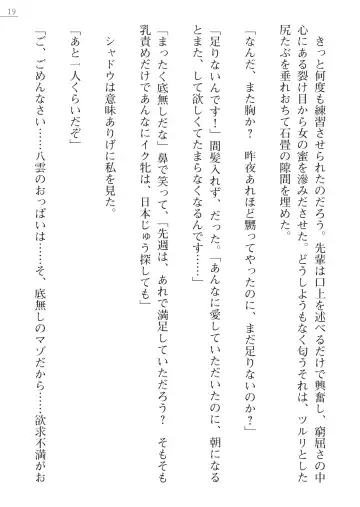 19
きっと何度も練習させられたのだろう。先輩は口上を述べるだけで興奮し、窮屈さの中
心にある裂け目から女の蜜を滲みださせた。どうしようもなく匂うそれは、ツルリとした
尻たぶを垂れおちて石畳の隙間を埋めた。
「なんだ、また胸か? 昨夜あれほど嬲ってやったのに、まだ足りないのか?」
「足りないんです!」間髪入れず、だった。「あんなに愛していただいたのに、朝になる
と、また、して欲しくてたまらなくなるんです……」
「まったく底無しだな」鼻で笑って、「先週は、あれで満足していただろう? そもそも
乳責めだけであんなにイク牝は、日本じゅう探しても」
シャドウは意味ありげに私を見た。
「あと一人くらいだぞ」
「ご、ごめんなさい……八雲のおっぱいは……そ、底無しのマゾだから……欲求不満がお